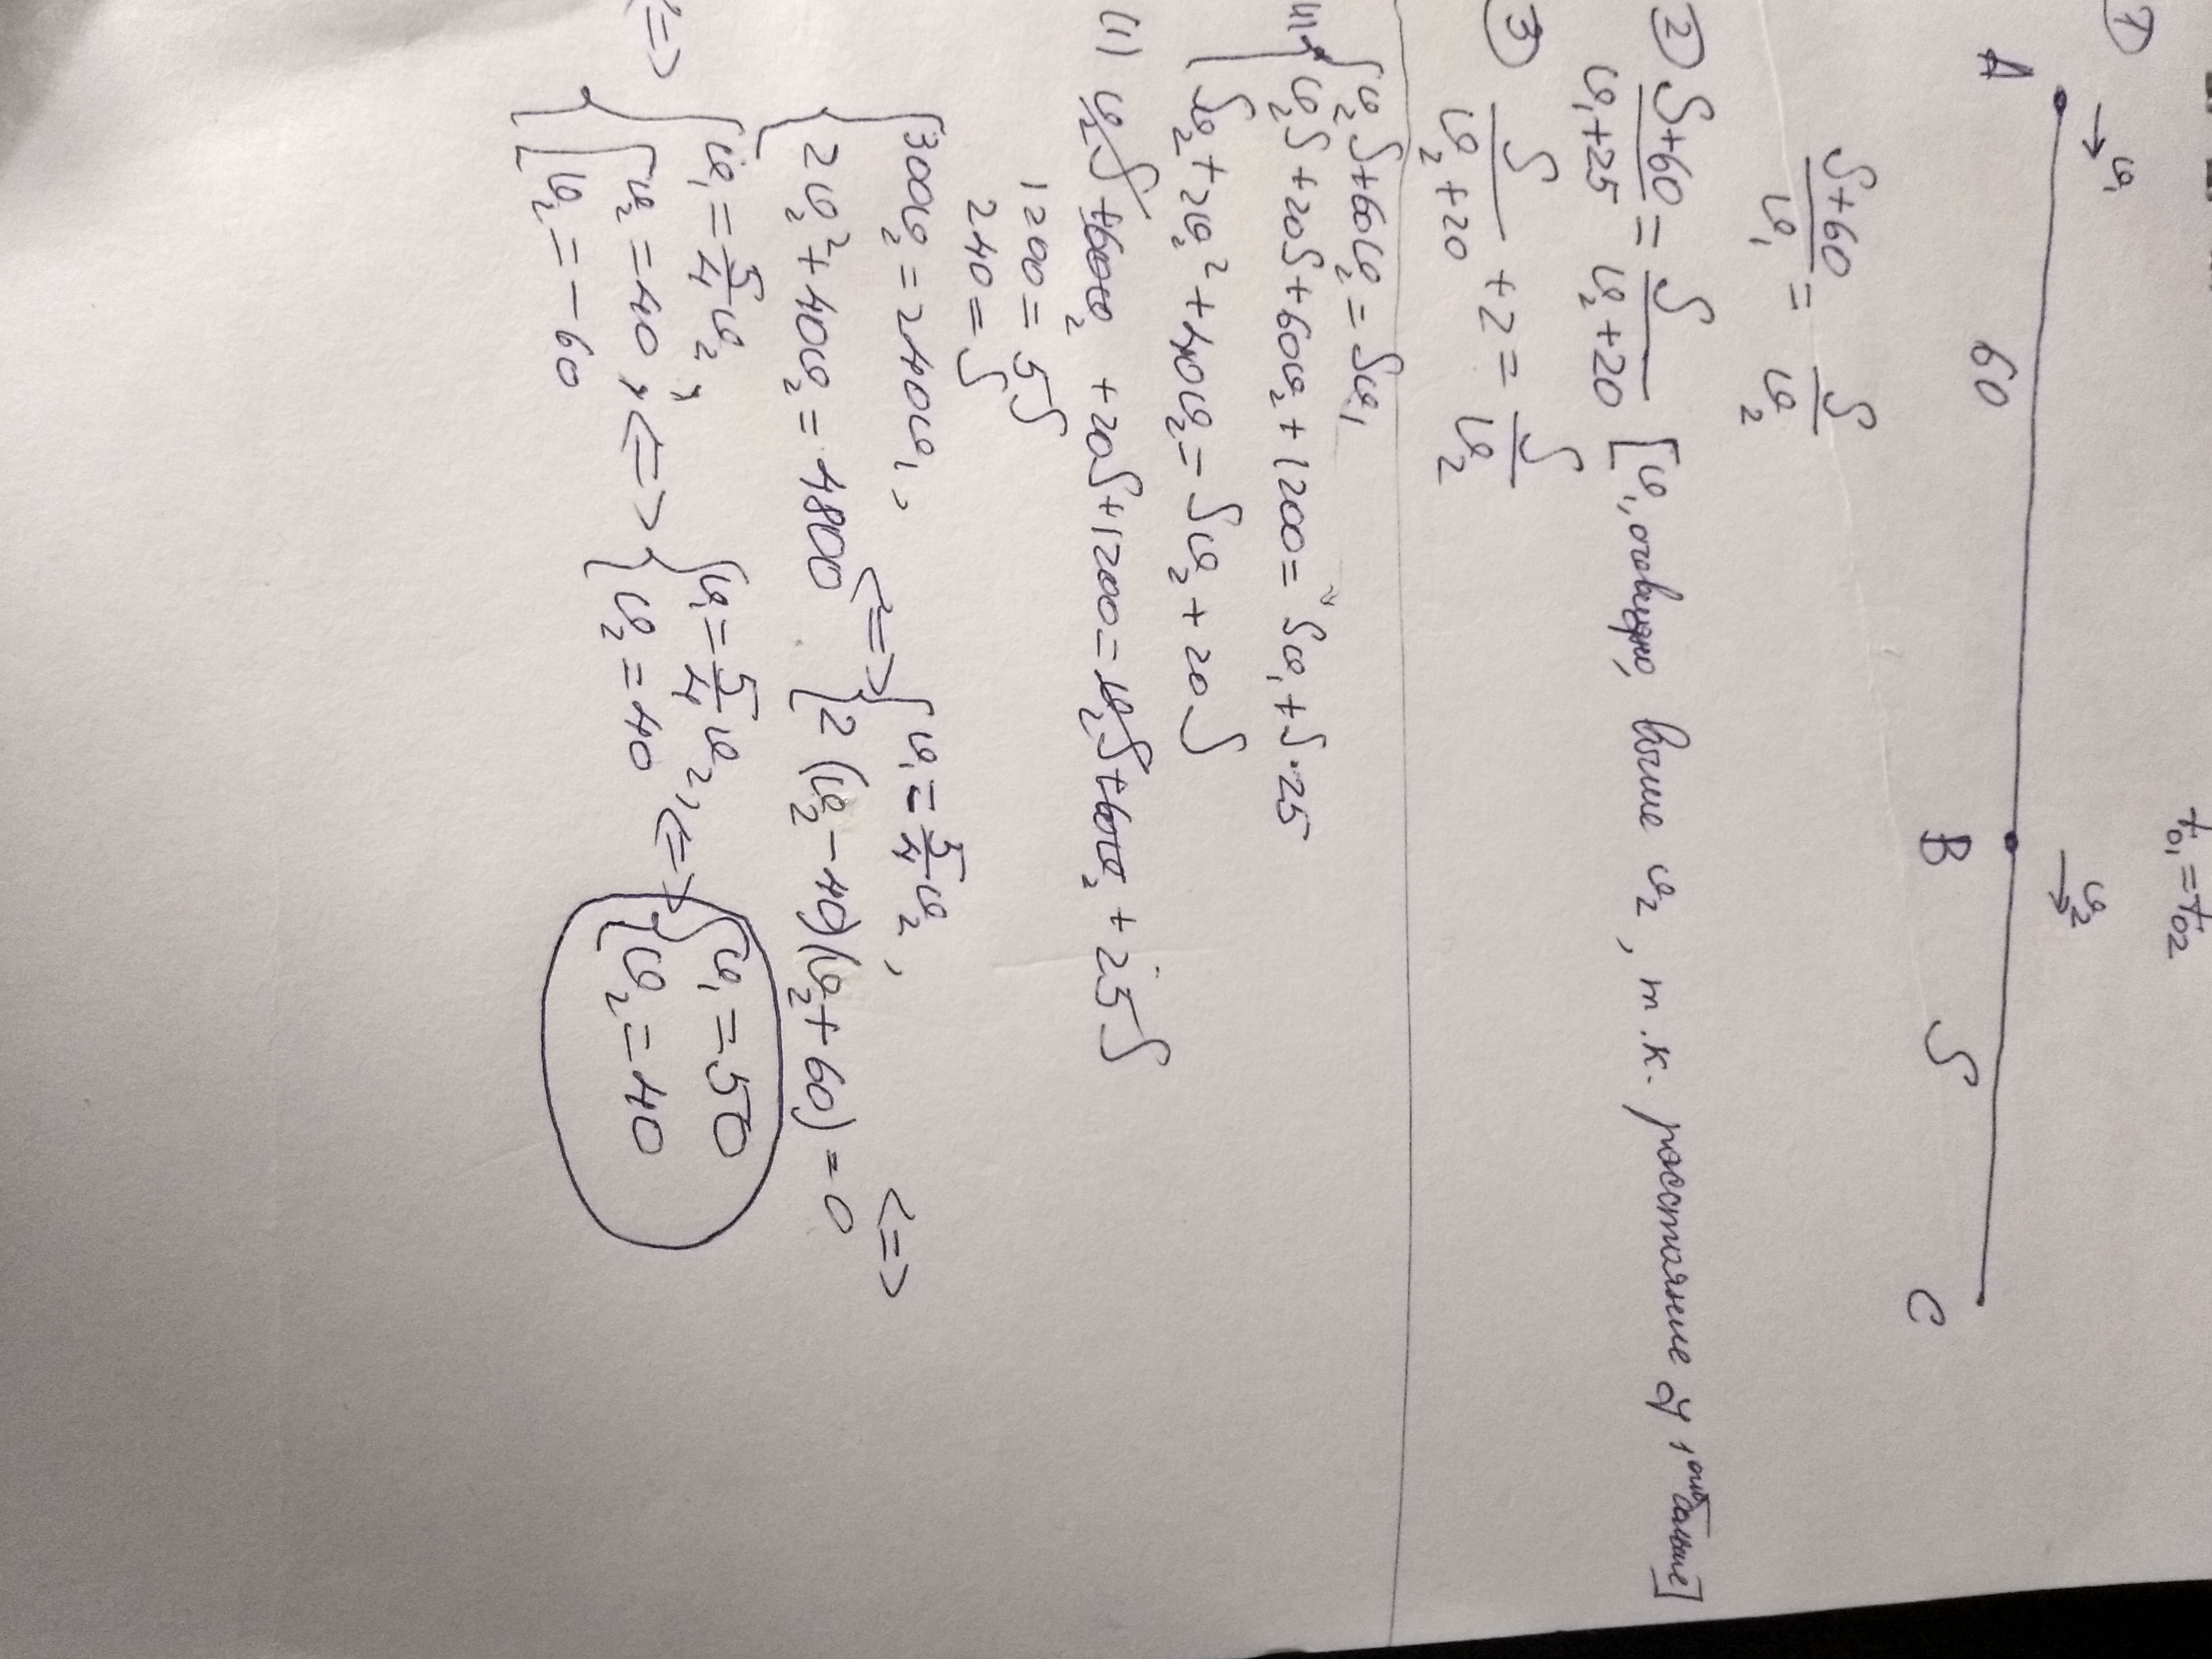 ① t₀₁ = t₀₂
→ v₁ → v₂
A 60 B S C
(S+60)/v₁ = S/v₂
② (S+60)/(v₁+25) = S/(v₂+20) [v₁, очевидно, выше v₂, т.к. расстояние у 1ого больше]
③ S/(v₂+20) + 2 = S/v₂
{ v₂S+60v₂ = Sv₁
v₂S+20S+60v₂+1200 = Sv₁+S·25
Sv₂+2v₂²+40v₂ = Sv₂+20S
(1) v₂S+60v₂ +20S+1200 = v₂S+60v₂+25S
1200 = 5S
240 = S
{ 300v₂ = 240v₁, <=> { v₁ = 5/4 v₂, <=>
2v₂²+40v₂ = 4800 2(v₂-40)(v₂+60) = 0
<=> { v₁ = 5/4 v₂, <=> { v₁ = 5/4 v₂, <=> { v₁ = 50
[ v₂ = 40, v₂ = 40 v₂ = 40
v₂ = -60